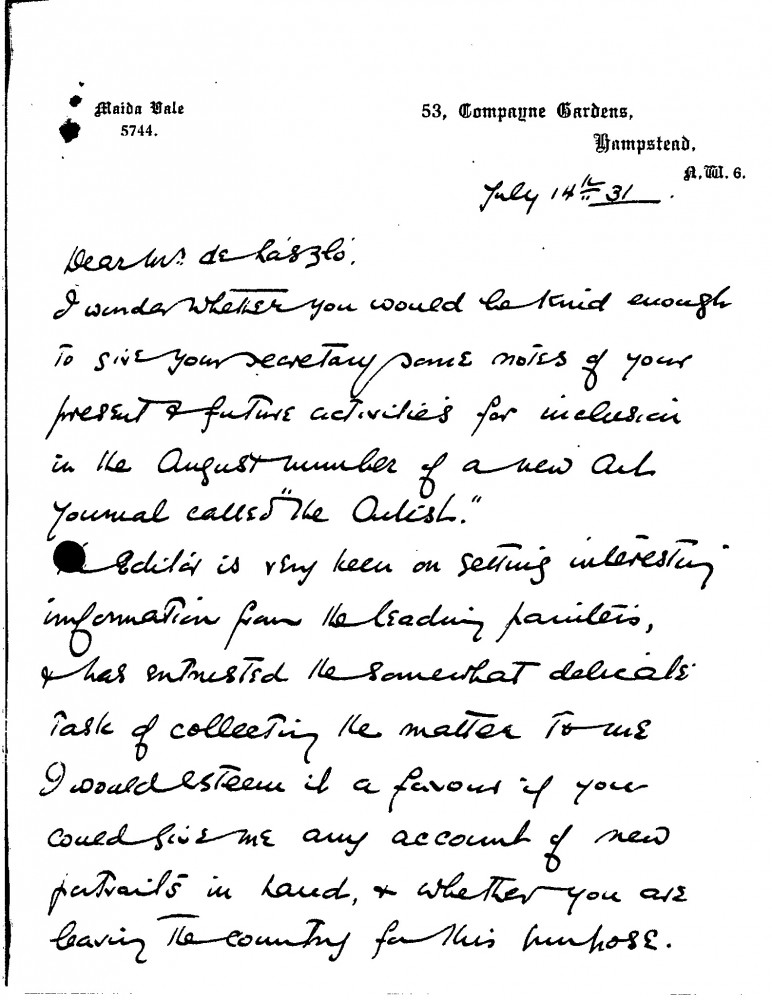 Maida Vale
5744.
53, Compayne Gardens,
Hampstead,
N.W. 6.
July 14th 31.
Dear Mr. de László.
I wonder whether you would be kind enough
to give your secretary some notes of your
present & future activities for inclusion
in the August number of a new Art
Journal called "The Artist."
Editor is very keen on getting interesting
information from the leading painters,
& has entrusted the somewhat delicate
task of collecting the matter to me
I would esteem it a favour if you
could give me any account of new
portraits in hand, & whether you are
leaving the country for this purpose.